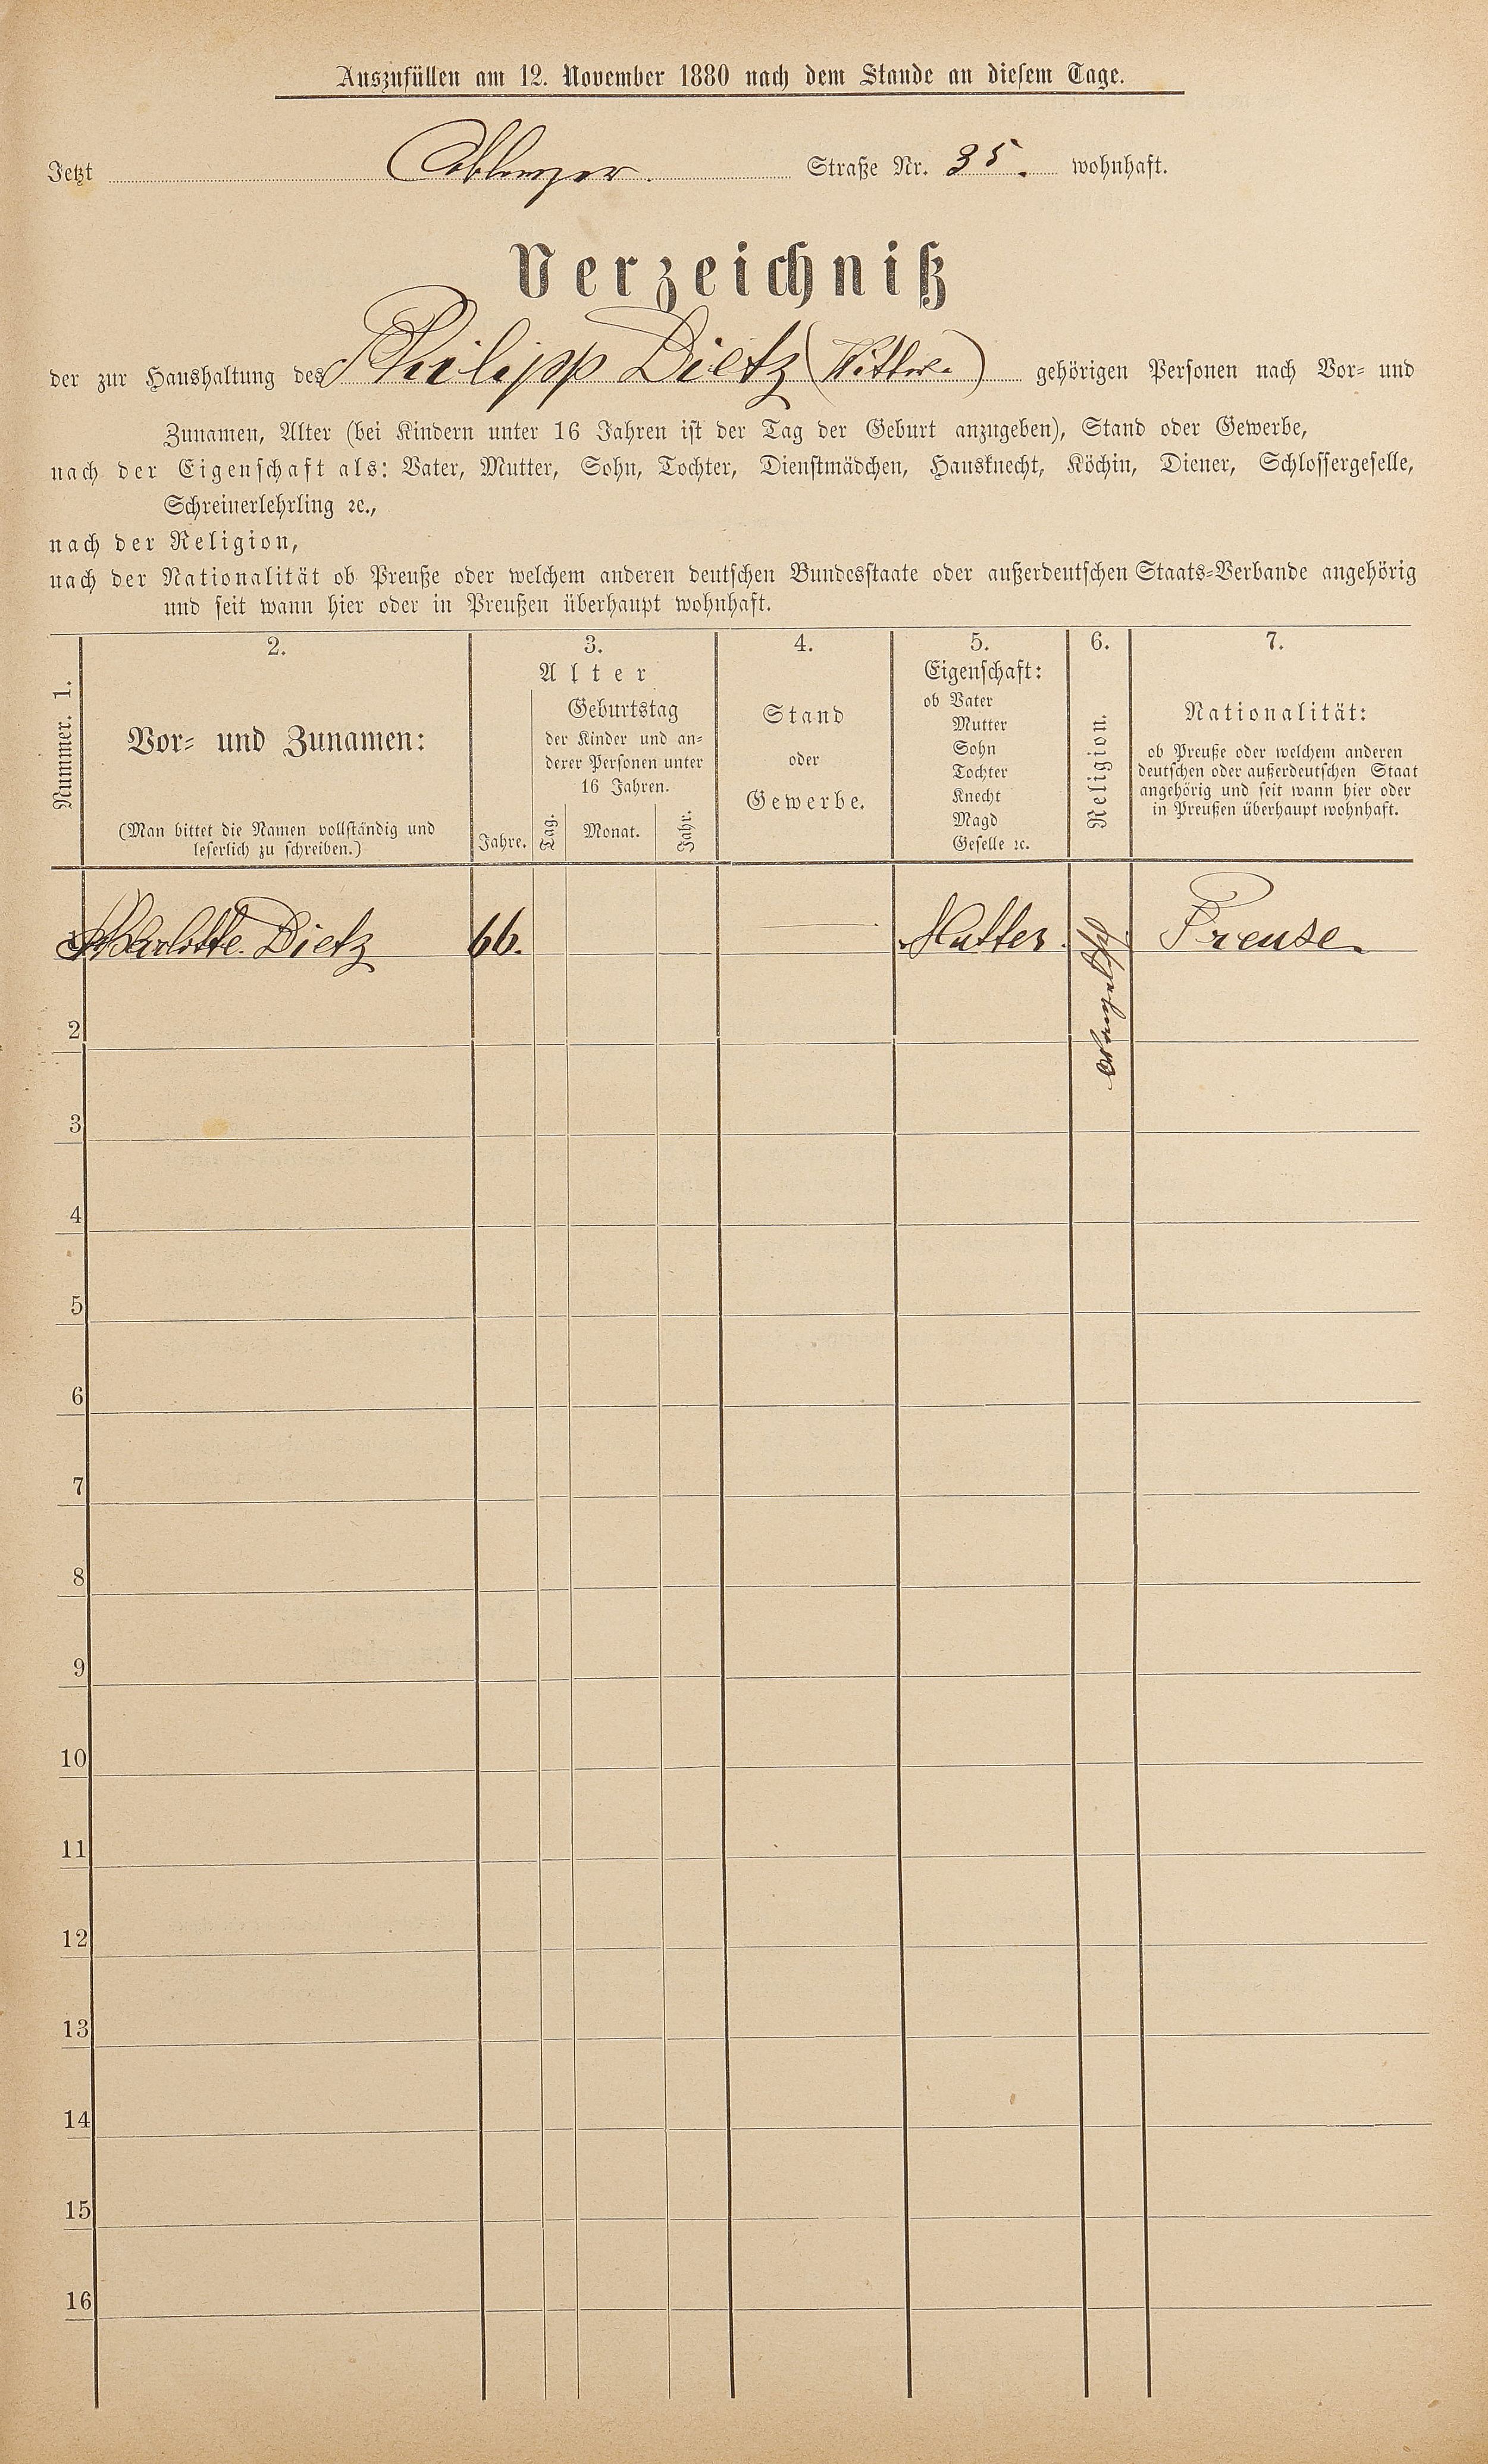 Auszufüllen am 12. November 1880 nach dem Stande an diesem Tage.
Jetzt Coblenzer Straße Nr. 35. wohnhaft.
Verzeichniß
der zur Haushaltung des Philipp Dietz (Wittwe) gehörigen Personen nach Vor- und
Zunamen, Alter (bei Kindern unter 16 Jahren ist der Tag der Geburt anzugeben), Stand oder Gewerbe,
nach der Eigenschaft als: Vater, Mutter, Sohn, Tochter, Dienstmädchen, Hausknecht, Köchin, Diener, Schlossergeselle,
Schreinerlehrling ꝛc.,
nach der Religion,
nach der Nationalität ob Preuße oder welchem anderen deutschen Bundesstaate oder außerdeutschen Staats-Verbande angehörig
und seit wann hier oder in Preußen überhaupt wohnhaft.
Nummer. 1.
2.
Vor- und Zunamen:
(Man bittet die Namen vollständig und
leserlich zu schreiben.)
3.
Alter
Jahre.
Geburtstag
der Kinder und an-
derer Personen unter
16 Jahren.
Tag. Monat. Jahr.
4.
Stand
oder
Gewerbe.
5.
Eigenschaft:
ob Vater
Mutter
Sohn
Tochter
Knecht
Magd
Geselle ꝛc.
6.
Religion.
7.
Nationalität:
ob Preuße oder welchem anderen
deutschen oder außerdeutschen Staat
angehörig und seit wann hier oder
in Preußen überhaupt wohnhaft.
Charlotte Dietz 66. Mutter. Preuse
2
3
4
5
6
7
8
9
10
11
12
13
14
15
16